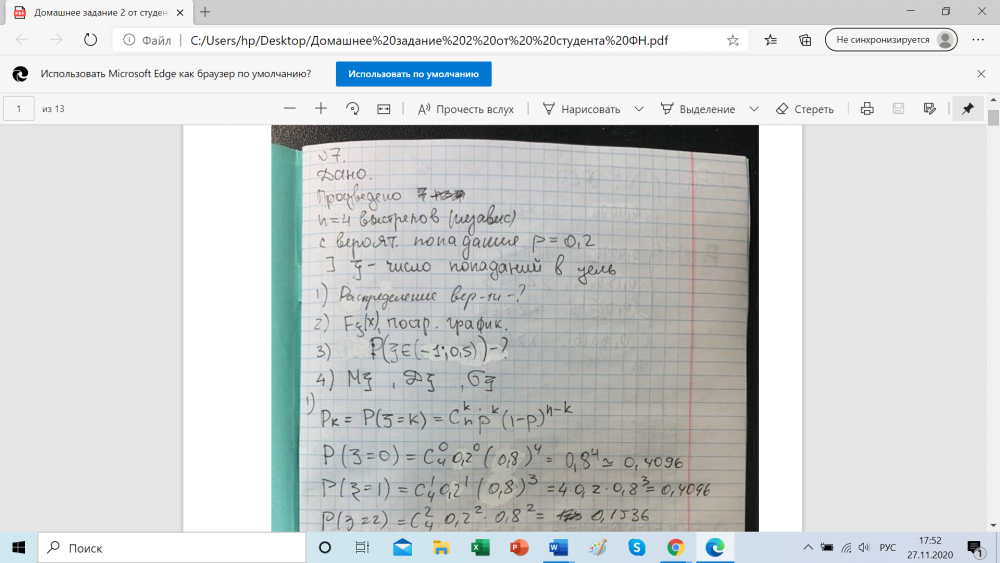 Домашнее задание 2 от студен
Файл C:/Users/hp/Desktop/Домашнее%20задание%202%20от%20%20студента%20ФН.pdf
Не синхронизируется
Использовать Microsoft Edge как браузер по умолчанию? Использовать по умолчанию
1 из 13 Прочесть вслух Нарисовать Выделение Стереть
№7.
Дано.
Произведено
n=4 выстрелов (независ)
с вероят. попадание p=0,2
ξ - число попаданий в цель
1) Распределение вер-ти-?
2) Fξ(x), постр. график.
3) P(ξ∈(-1;0,5))-?
4) Mξ, Dξ, σξ
1)
Pк = P(ξ=к) = Cₙᵏ pᵏ (1-p)ⁿ⁻ᵏ
P(ξ=0) = C₄⁰ 0,2⁰ (0,8)⁴ = 0,8⁴ ≃ 0,4096
P(ξ=1) = C₄¹ 0,2¹ (0,8)³ = 4·0,2·0,8³ = 0,4096
P(ξ=2) = C₄² 0,2²·0,8² = 0,1536
Поиск
РУС
17:52
27.11.2020
1